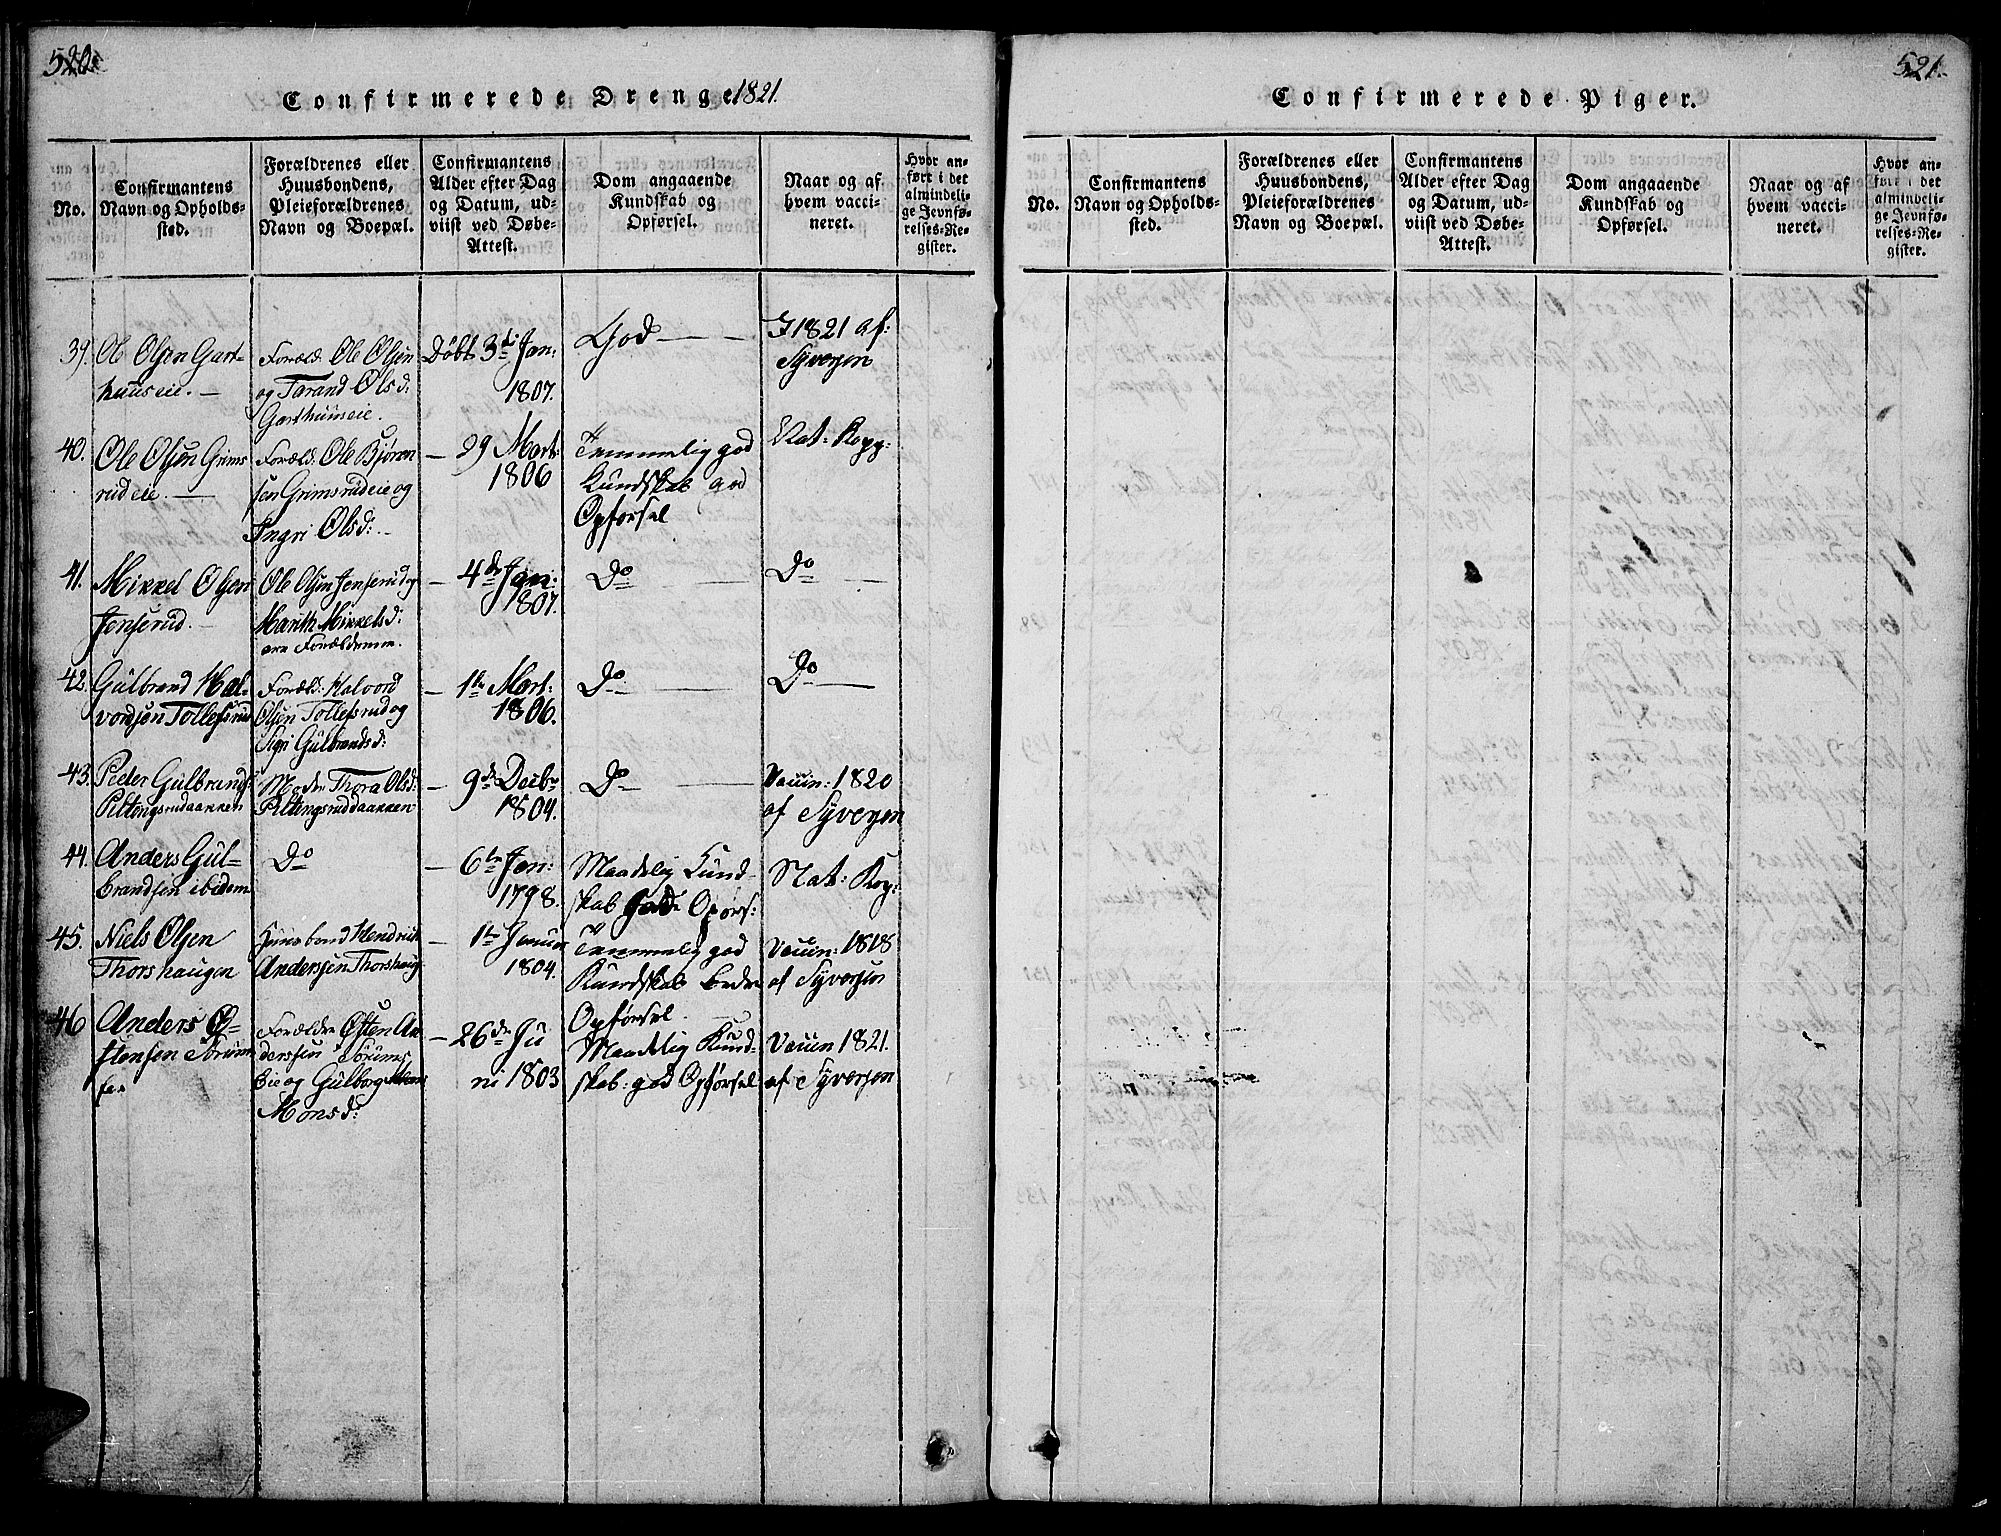 520.
Confirmerede Drenge 1821.
No.
Confirmantens
Navn og Opholds-
sted.
Forældrenes eller
Huusbondens,
Pleieforældrenes
Navn og Boepæl.
Confirmantens
Alder efter Dag
og Datum, ud-
viist ved Døbe-
Attest.
Dom angaaende
Kundskab og
Opførsel.
Naar og af
hvem vacci-
neret.
Hvor an-
ført i det
almindeli-
ge Jevnfø-
relses-Re-
gister.
39. Ole Olsen Gart-
huuseie. —
Foræld: Ole Olsen
og Tarand Olsd:
Garthuuseie.
Døbt 3di Jan:
1807.
God —
I 1821 af:
Syversen
40. Ole Olsen Grims
rudeie. —
Foræld: Ole Bjørn
sen Grimsrudeie og
Ingri Olsd: —
— 29 Mart:
1806
Temmelig god
Kundskab god
Opførsel
Nat: Kopp:
41. Mikkel Olsen
Jenserud. —
Ole Olsen Jenserud og
Marith Mikkelsd:
ere Forældrene.
— 4de Jan:
1807.
Do —
Do —
42. Gulbrand Hal-
vorsen Tollefsrud
Foræld: Halvord
Olsen Tollefsrud og
Sigri Gulbrandsd:
— 1te Mart:
1806.
Do —
Do —
43. Peder Gulbrands:
Piltingsrudaakeren
Moder Thora Olsd:
Piltingsrudaakeren
— 9de Decbr
1804.
Do —
Vaccin: 1820
af Syversen
44. Anders Gul-
brandsen ibidem
Do
— 6te Jan:
1798.
Maadelig Kund-
skab Gode Opførs:
Nat: Kop:
45. Niels Olsen
Thorshaugen
Huusbond Hendrich
Anderssen Thorshaug
— 1te Januar
1804.
Temmelig god
Kundskab bedre
Opførsel.
Vaccin: 1818
af Syversen
46 Anders Ø-
stensen Sørum
Forældre Østen An
derssen Sørums
eie og Gulborg
Monsd:
— 26de Ju
ni 1803
Maadelig Kund-
skab: god Opførsel
Vaccin 1821.
af Syversen
521.
Confirmerede Piger.
No.
Confirmantens
Navn og Opholds-
sted.
Forældrenes eller
Huusbondens,
Pleieforældrenes
Navn og Boepæl.
Confirmantens
Alder efter Dag
og Datum, ud-
viist ved Døbe-
Attest.
Dom angaaende
Kundskab og
Opførsel.
Naar og af
hvem vacci-
neret.
Hvor an-
ført i det
almindeli-
ge Jevnfø-
relses-Re-
gister.